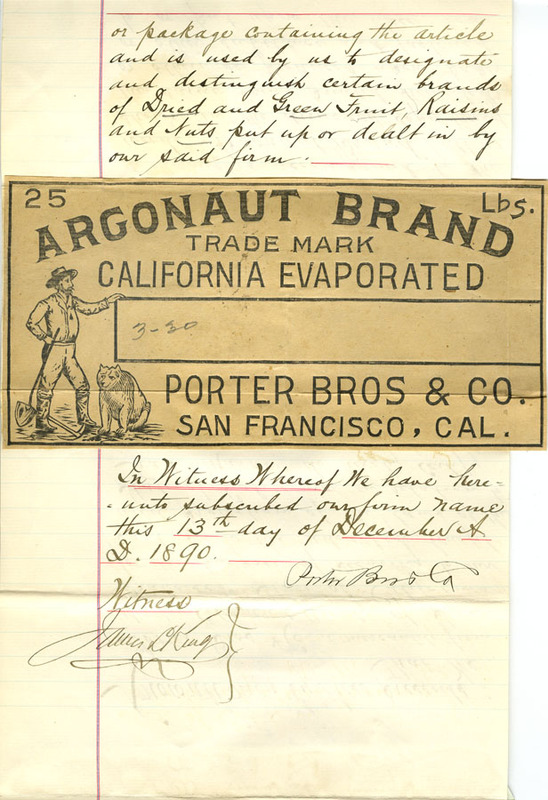 or package containing the article
and is used by us to designate
and distinguish certain brands
of Dried and Green Fruit, Raisins
and Nuts put up or dealt in by
our said firm.
25 Lbs.
ARGONAUT BRAND
TRADE MARK
CALIFORNIA EVAPORATED
3-30
PORTER BROS & CO.
SAN FRANCISCO, CAL.
In Witness Whereof We have here-
-unto subscribed our firm name
this 13th day of December A
D. 1890.
Porter Bros Co
Witness
James L King